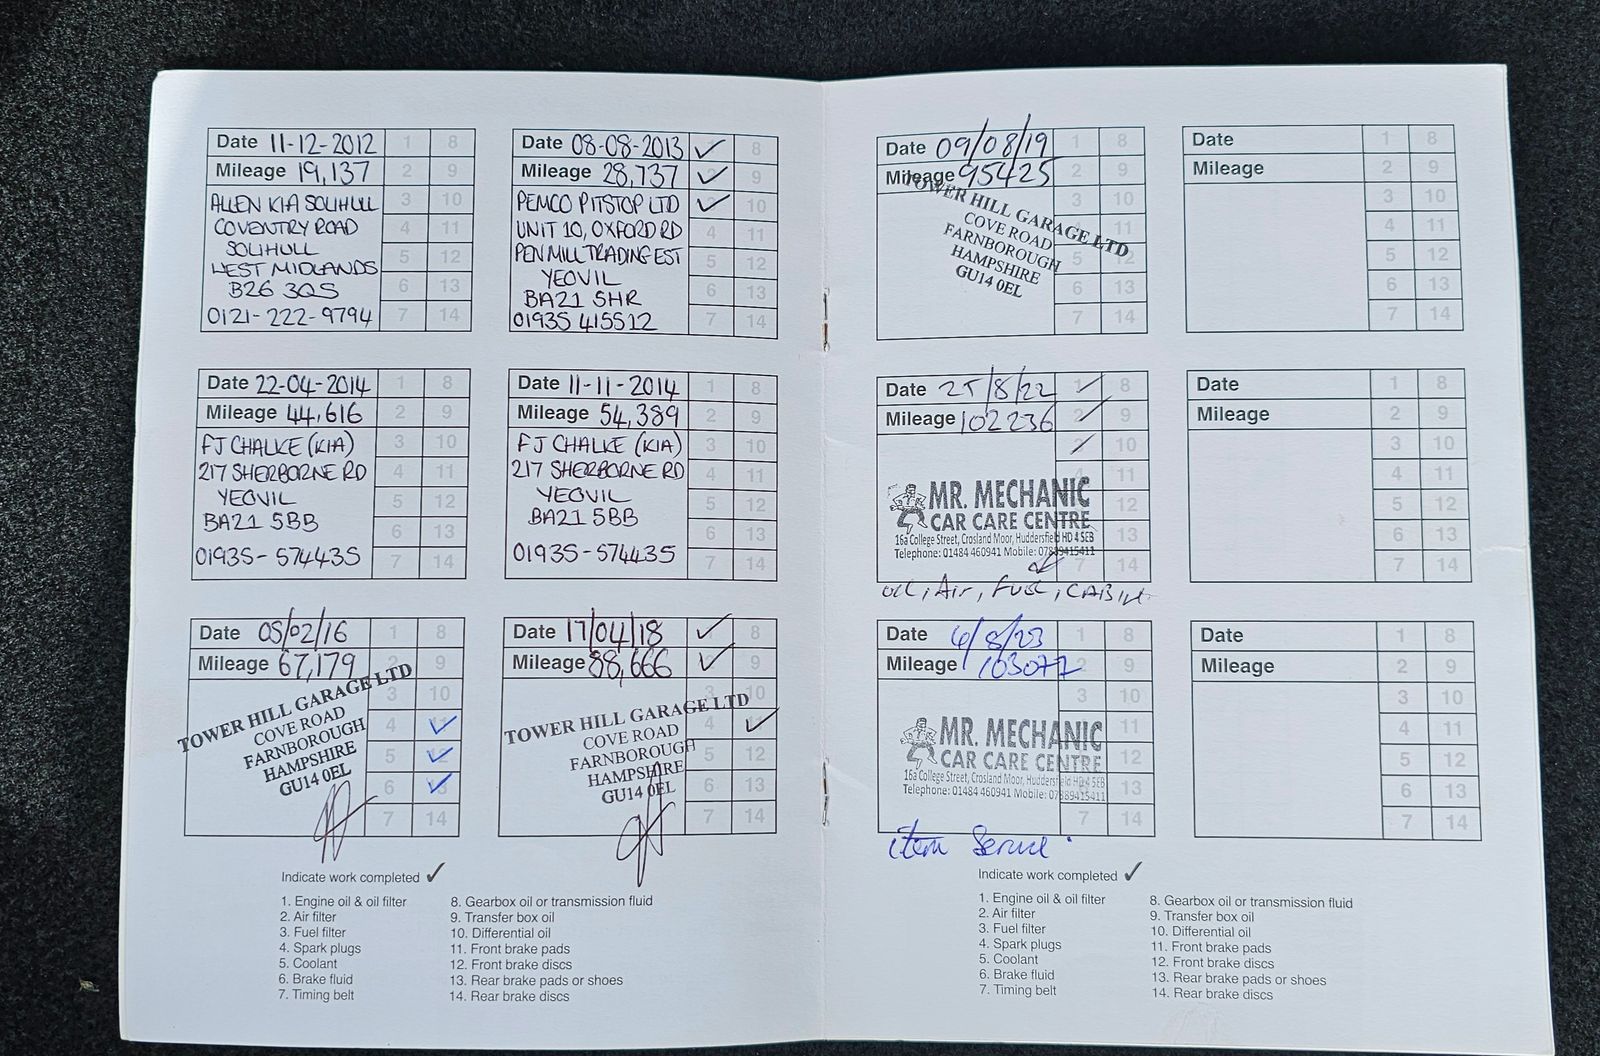 Date 11-12-2012 1 8
Mileage 19,137 2 9
ALLEN KIA SOLIHULL 3 10
COVENTRY ROAD 4 11
SOLIHULL 5 12
WEST MIDLANDS
B26 3QS 6 13
0121-222-9794 7 14
Date 08-08-2013 ✓ 8
Mileage 28,737 ✓ 9
PEMCO PITSTOP LTD ✓ 10
UNIT 10, OXFORD RD 4 11
PEN MILL TRADING EST 5 12
YEOVIL
BA21 5HR 6 13
01935 415512 7 14
Date 22-04-2014 1 8
Mileage 44,616 2 9
FJ CHALKE (KIA) 3 10
217 SHERBORNE RD 4 11
YEOVIL 5 12
BA21 5BB 6 13
01935-574435 7 14
Date 11-11-2014 1 8
Mileage 54,389 2 9
FJ CHALKE (KIA) 3 10
217 SHERBORNE RD 4 11
YEOVIL 5 12
BA21 5BB 6 13
01935-574435 7 14
Date 05/02/16 1 8
Mileage 67,179 2 9
3 10
4 11 ✓
5 12 ✓
6 13 ✓
7 14
TOWER HILL GARAGE LTD
COVE ROAD
FARNBOROUGH
HAMPSHIRE
GU14 0EL
Date 17/04/18 ✓ 8
Mileage 88,666 ✓ 9
3 10
4 11 ✓
5 12
6 13
7 14
TOWER HILL GARAGE LTD
COVE ROAD
FARNBOROUGH
HAMPSHIRE
GU14 0EL
Indicate work completed ✓
1. Engine oil & oil filter
2. Air filter
3. Fuel filter
4. Spark plugs
5. Coolant
6. Brake fluid
7. Timing belt
8. Gearbox oil or transmission fluid
9. Transfer box oil
10. Differential oil
11. Front brake pads
12. Front brake discs
13. Rear brake pads or shoes
14. Rear brake discs
Date 09/08/19 1 8
Mileage 95425 2 9
3 10
11
5 12
6 13
7 14
TOWER HILL GARAGE LTD
COVE ROAD
FARNBOROUGH
HAMPSHIRE
GU14 0EL
Date 1 8
Mileage 2 9
3 10
4 11
5 12
6 13
7 14
Date 25/8/22 1 ✓ 8
Mileage 102236 2 ✓ 9
3 ✓ 10
4 11
12
13
7 14
MR. MECHANIC
CAR CARE CENTRE
16a College Street, Crosland Moor, Huddersfield HD4 5EB
Telephone: 01484 460941 Mobile: 07889415411
OIL, Air, Fuel, CABIN
Date 1 8
Mileage 2 9
3 10
4 11
5 12
6 13
7 14
Date 6/8/23 1 8
Mileage 103077 2 9
3 10
11
12
13
7 14
MR. MECHANIC
CAR CARE CENTRE
16a College Street, Crosland Moor, Huddersfield HD4 5EB
Telephone: 01484 460941 Mobile: 07889415411
item Service.
Date 1 8
Mileage 2 9
3 10
4 11
5 12
6 13
7 14
Indicate work completed ✓
1. Engine oil & oil filter
2. Air filter
3. Fuel filter
4. Spark plugs
5. Coolant
6. Brake fluid
7. Timing belt
8. Gearbox oil or transmission fluid
9. Transfer box oil
10. Differential oil
11. Front brake pads
12. Front brake discs
13. Rear brake pads or shoes
14. Rear brake discs